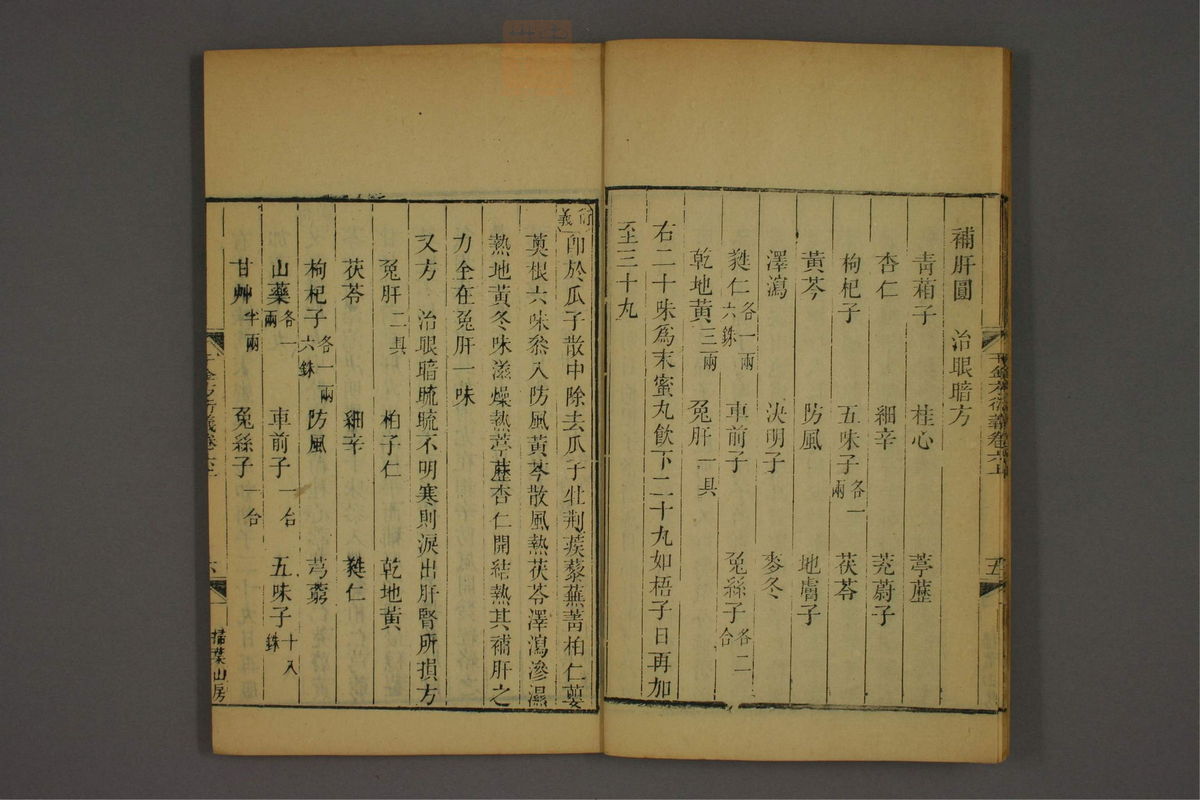 補肝圓　治眼暗方
青葙子　桂心　葶藶
杏仁　細辛　茺蔚子
枸杞子　五味子各一兩　茯苓
黃芩　防風　地膚子
澤瀉　決明子　麥冬
蕤仁各一兩六銖　車前子　兔絲子各二合
乾地黃三兩　兔肝一具
右二十味爲末蜜丸飲下二十丸如梧子日再加
至三十丸
千金方衍義卷六上　五
衍義
卽於瓜子散中除去瓜子牡荆蒺藜蕪菁柏仁蔓
荑根六味叅入防風黃芩散風熱茯苓澤瀉滲濕
熱地黃冬味滋燥熱葶藶杏仁開結熱其補肝之
力全在兔肝一味
又方　治眼暗䀮䀮不明寒則淚出肝腎所損方
兔肝二具　柏子仁　乾地黃
茯苓　細辛　蕤仁
枸杞子各一兩六銖　防風　芎藭
山藥各一兩　車前子一合　五味子十八銖
甘艸半兩　兔絲子一合
千金方衍義卷六上　六　掃葉山房